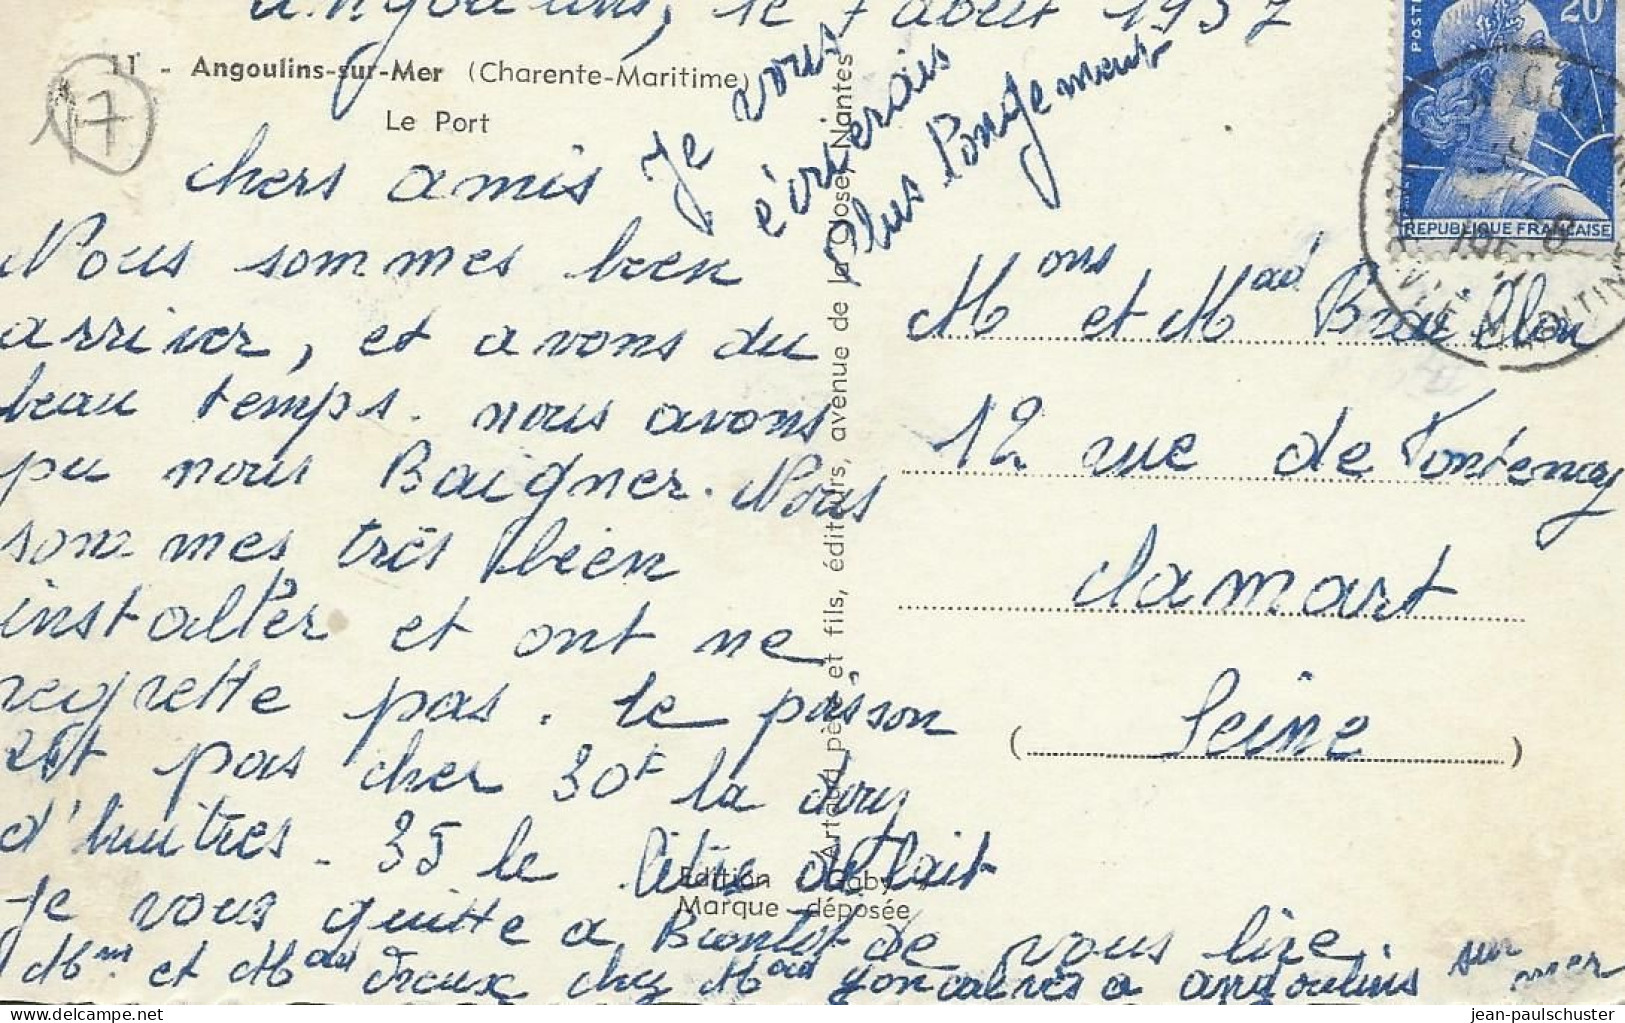 Angoulins, le 7 août 1957
11 - Angoulins-sur-Mer (Charente-Maritime)
Le Port
17
chers amis
Nous sommes bien
arriver, et avons du
beau temps. nous avons
pu nous Baigner. Nous
sommes très bien
installer et ont ne
regrette pas. le poisson
est pas cher 30f la douz
d'huitres - 35 le litre de lait
je vous quitte a Bientot de vous lire.
Mm et Mad chez Mad Goncalves a angoulins sur mer
Je vous
écrierais
plus longement
Artaud père et fils, éditeurs, avenue de la Close, Nantes
Edition "Gaby"
Marque déposée
POSTES
20F
REPUBLIQUE FRANÇAISE
Mons et Mad Braillon
12 rue de Fontenay
clamart
(Seine)
jean-paulschuster